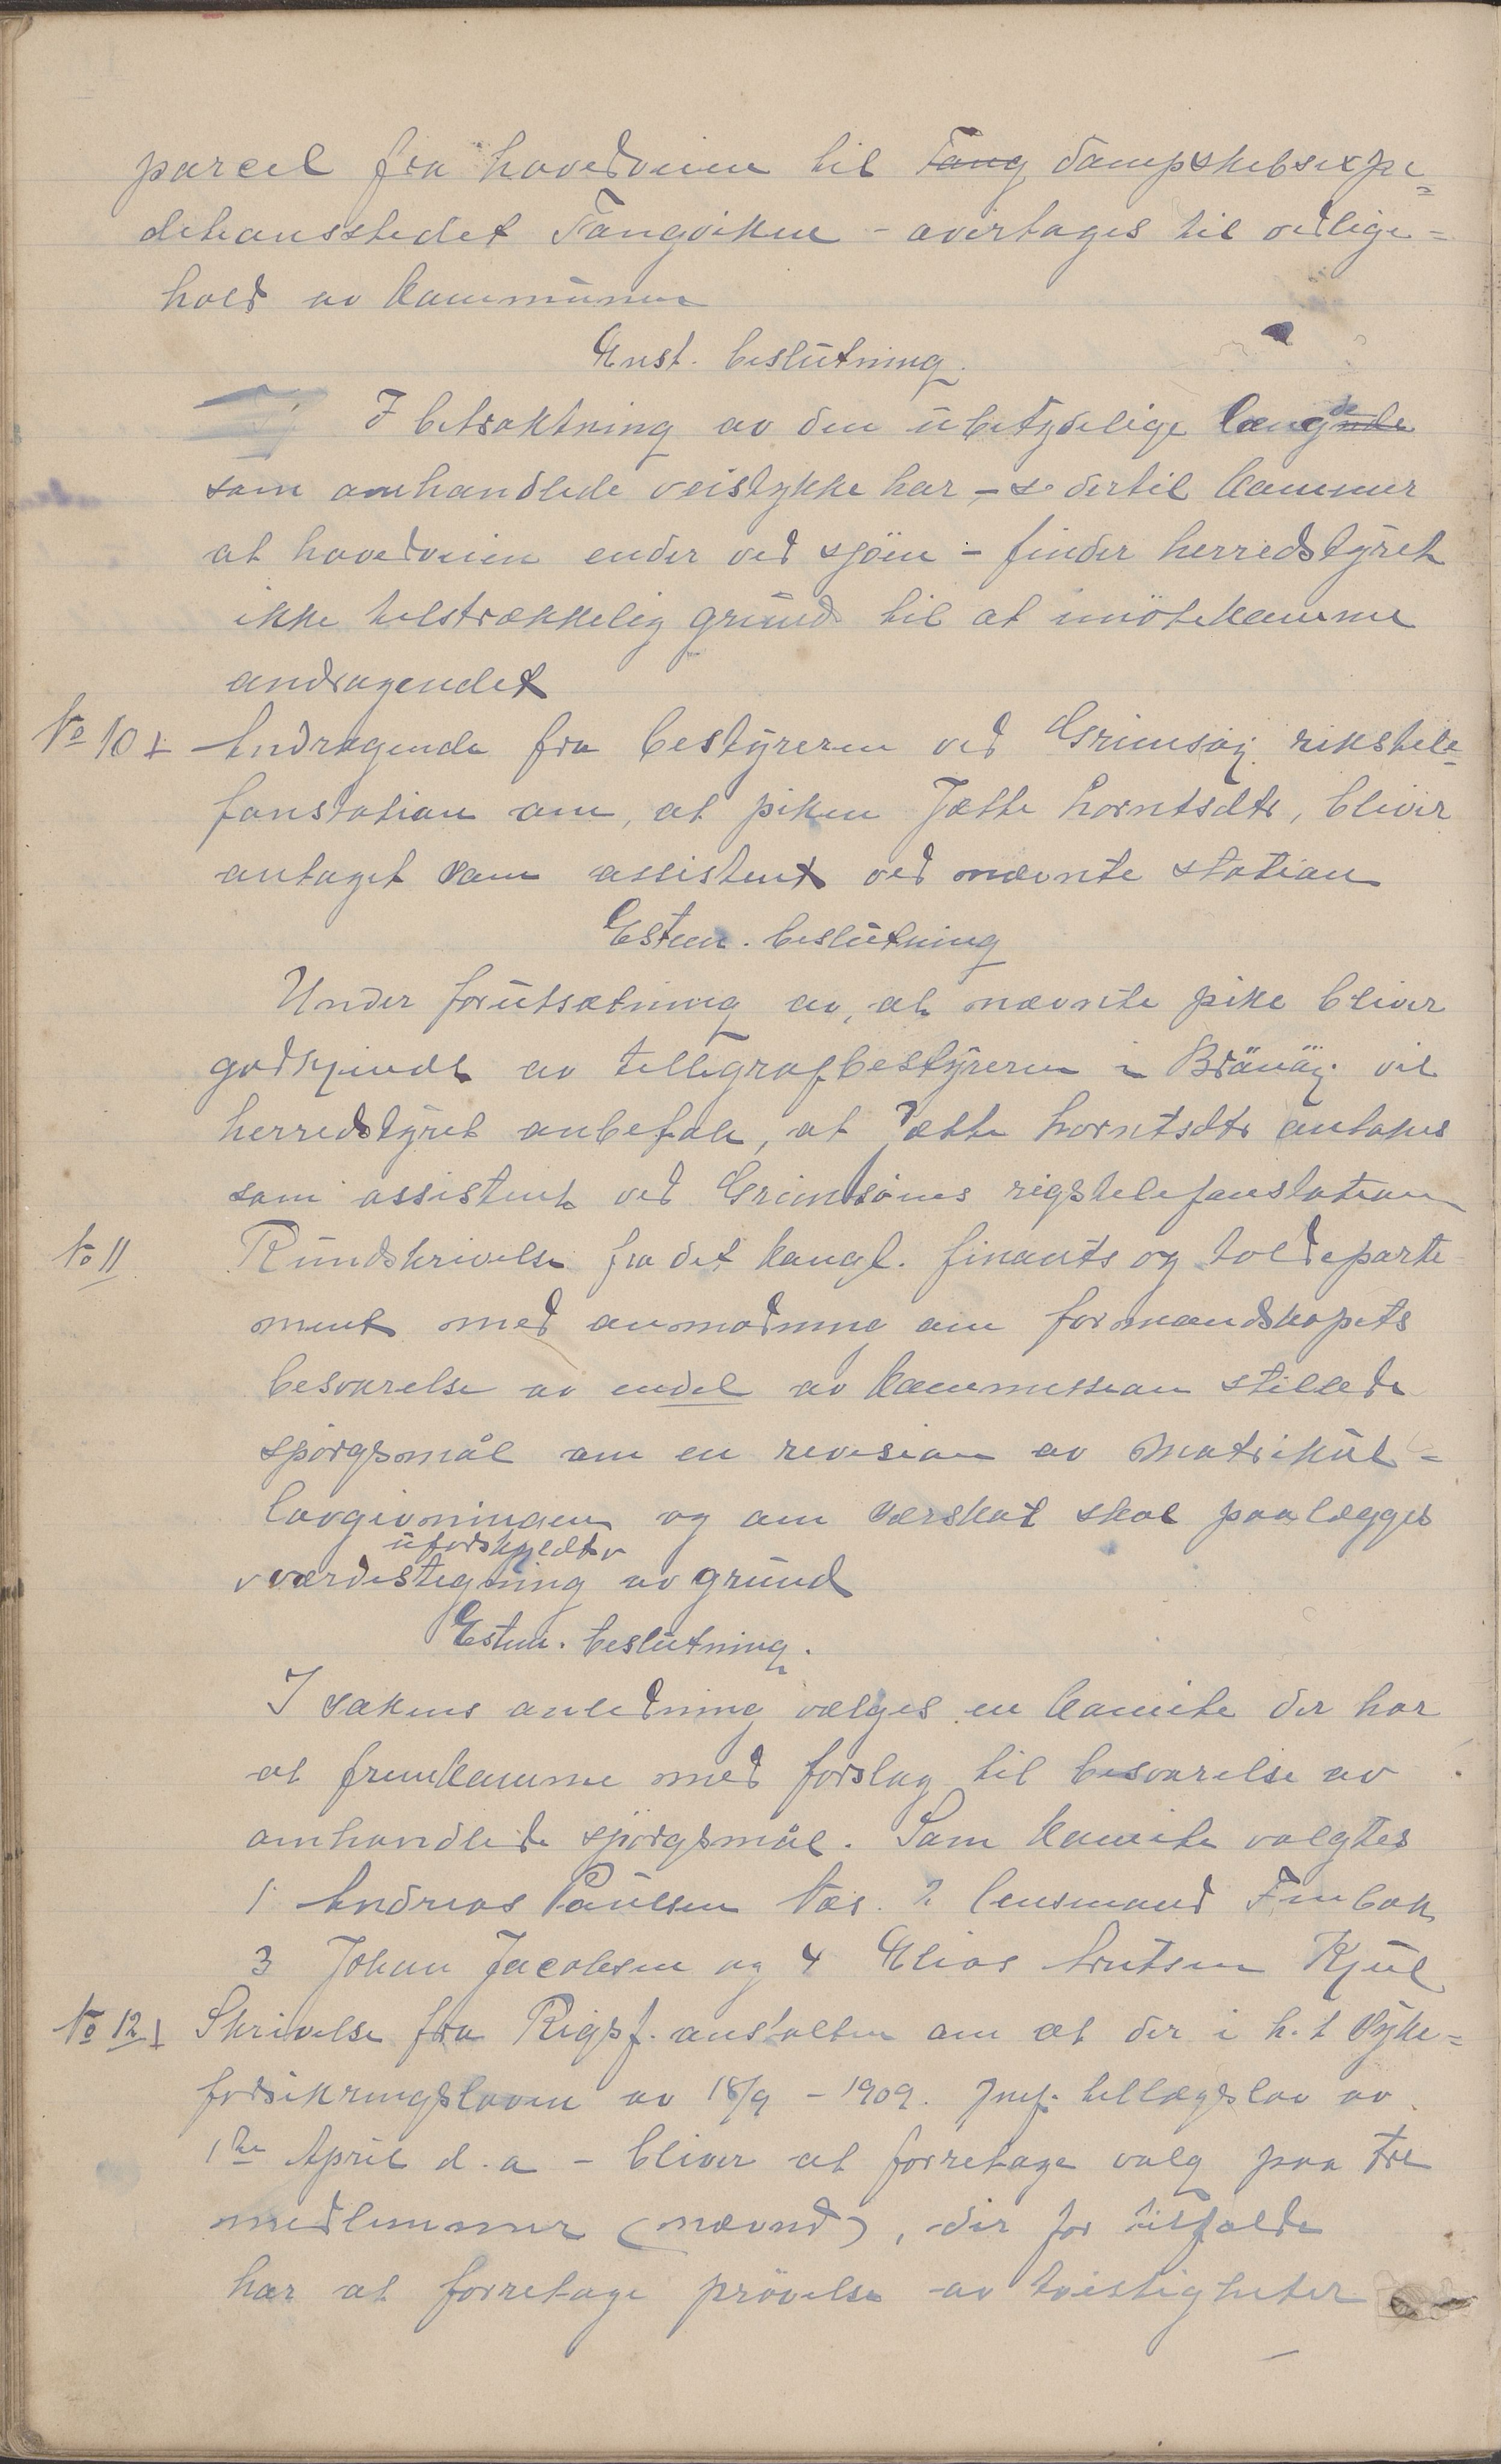 parcel fra hovedveien til Tang dampskibsexpe=
ditionsstedet Tangviken - overtages til vedlige=
hold av kommunen
Enst. beslutning.
I betraktning av den ubetydelige længde
som omhandlede veistykke har - dertil kommer
at hovedveien ender ved sjöen - finder herredstyret
ikke tilstrækkelig grund til at imötekomme
andragendet
No 10 + Andragende fra bestyreren ved Grimsöy rikstele=
fonstation om, at piken Jette Lorntsdtr, bliver
antaget som assistent ved nævnte station
Estem. beslutning
Under forutsætning av, at nævnte pike bliver
godkjendt av tellegrafbestyreren i Brönöy vil
herredstyret anbefale, at Jette Lorntsdtr antakes
som assistent ved Grimsöens rigstelefonstation
No 11 Rundskrivelse fra det kongl. finants og tolddeparte
ment med anmodning om formandskapets
besvarelse av endel av kommissionen stillede
spörgsmål om en revision av Matrikül=
lovgivningen og om særskat skal paalægges
uforskyldt
værdistegning av grund
Estem. beslutning.
I sakens anledning vælges en komite der har
at fremkomme med forslag til besvarelse av
omhandlede spörgsmål. Som komite valgtes
1 Andreas Paulsen Næs. 2 lensmand
3 Johan Jacobsen og 4 Elias Arntsen Kjul
No 12 + Skrivelse fra Rigsf. anstalten om at der i h. t Syke=
forsikringsloven av 18/9 - 1909. Jnf. tillægslov av
1ste April d. a - bliver at forretage valg paa tre
medlemmer (nævnd), der for tilfælde
har at forretage prövelse av tvistigheter